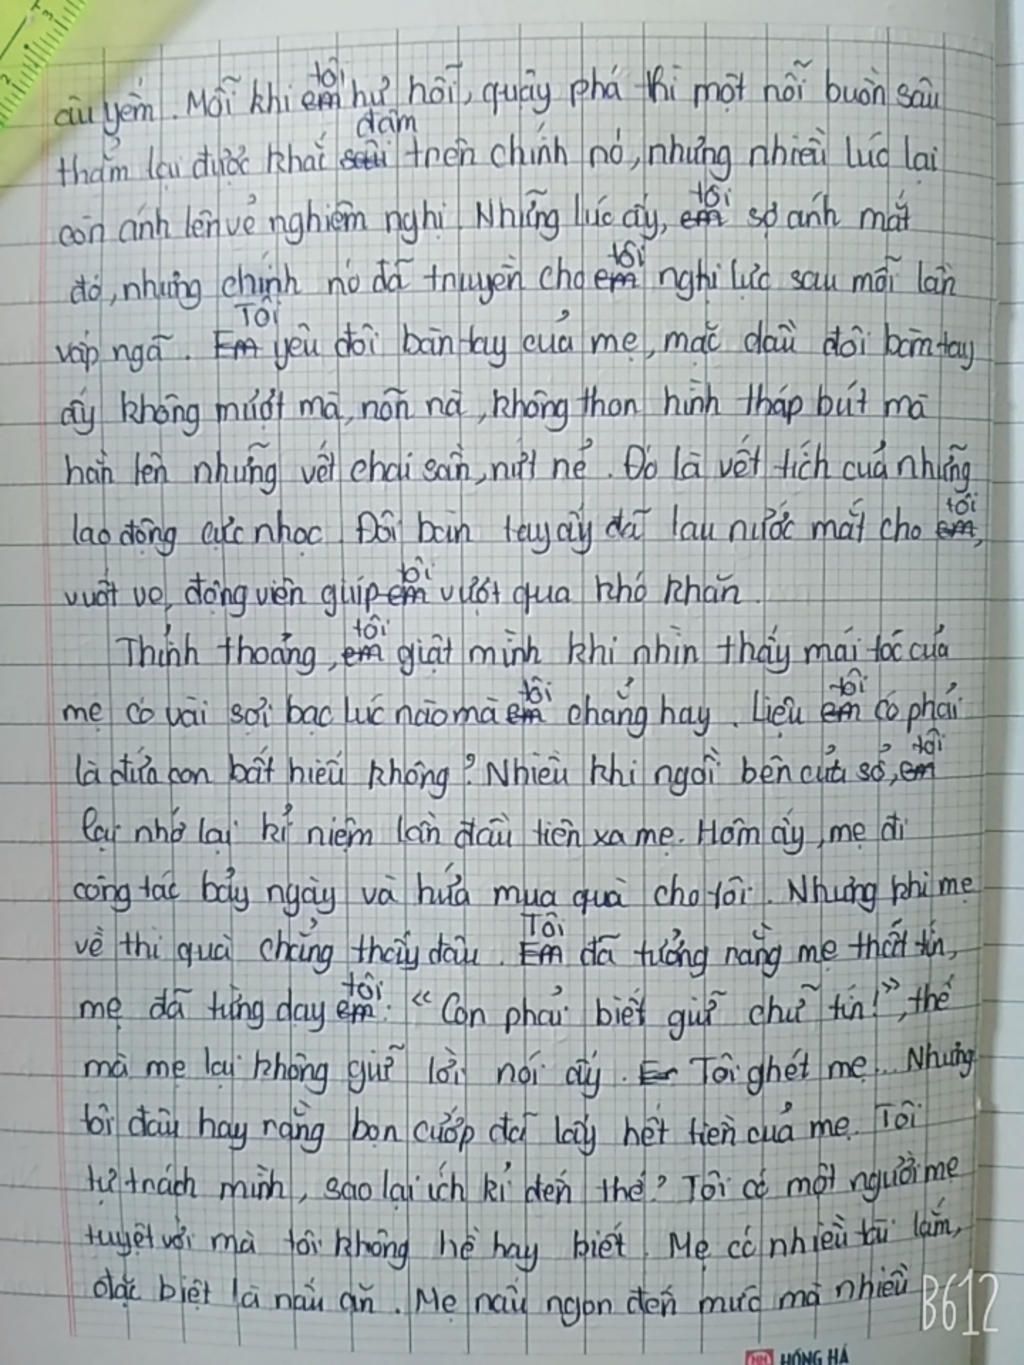 âu yếm. Mỗi khi em tôi hư hỗi, quậy phá thì một nỗi buồn sâu
thẳm lại được khắc sâu đậm trên chính nó, nhưng nhiều lúc lại
còn ánh lên vẻ nghiêm nghị. Những lúc ấy, em tôi sợ ánh mắt
đó, nhưng chính nó đã truyền cho em tôi nghị lực sau mỗi lần
vấp ngã. Em Tôi yêu đôi bàn tay của mẹ, mặc dầu đôi bàn tay
ấy không mượt mà, nõn nà, không thon hình tháp bút mà
hằn lên những vết chai sần, nứt nẻ. Đó là vết tích của những
lao động cực nhọc. Đôi bàn tay ấy đã lau nước mắt cho em tôi,
vuốt ve, động viên giúp em tôi vượt qua khó khăn.
Thỉnh thoảng, em tôi giật mình khi nhìn thấy mái tóc của
mẹ có vài sợi bạc lúc nào mà em tôi chẳng hay. Liệu em tôi có phải
là đứa con bất hiếu không? Nhiều khi ngồi bên cửa sổ, em tôi
lại nhớ lại kỉ niệm lần đầu tiên xa mẹ. Hôm ấy, mẹ đi
công tác bảy ngày và hứa mua quà cho tôi. Nhưng khi mẹ
về thì quà chẳng thấy đâu. Em Tôi đã tưởng rằng mẹ thất tín,
mẹ đã từng dạy em tôi: "Con phải biết giữ chữ tín!", thế
mà mẹ lại không giữ lời nói ấy. E Tôi ghét mẹ... Nhưng
tôi đâu hay rằng bọn cướp đã lấy hết tiền của mẹ. Tôi
tự trách mình, sao lại ích kỉ đến thế? Tôi có một người mẹ
tuyệt vời mà tôi không hề hay biết. Mẹ có nhiều tài lắm,
đặc biệt là nấu ăn. Mẹ nấu ngon đến mức mà nhiều
B612
HH HỒNG HÀ